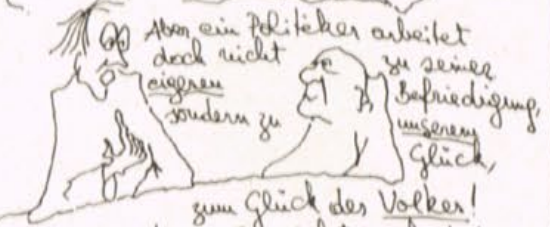 Aber ein Politiker arbeitet
doch nicht zu seiner
eigenen Befriedigung,
sondern zu unserem
Glück,
zum Glück des Volkes!